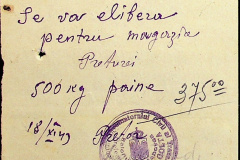 Se va elibera
pentru magazia
Preturei
500 Kg paine 375.00
18/XI 49 Pretor